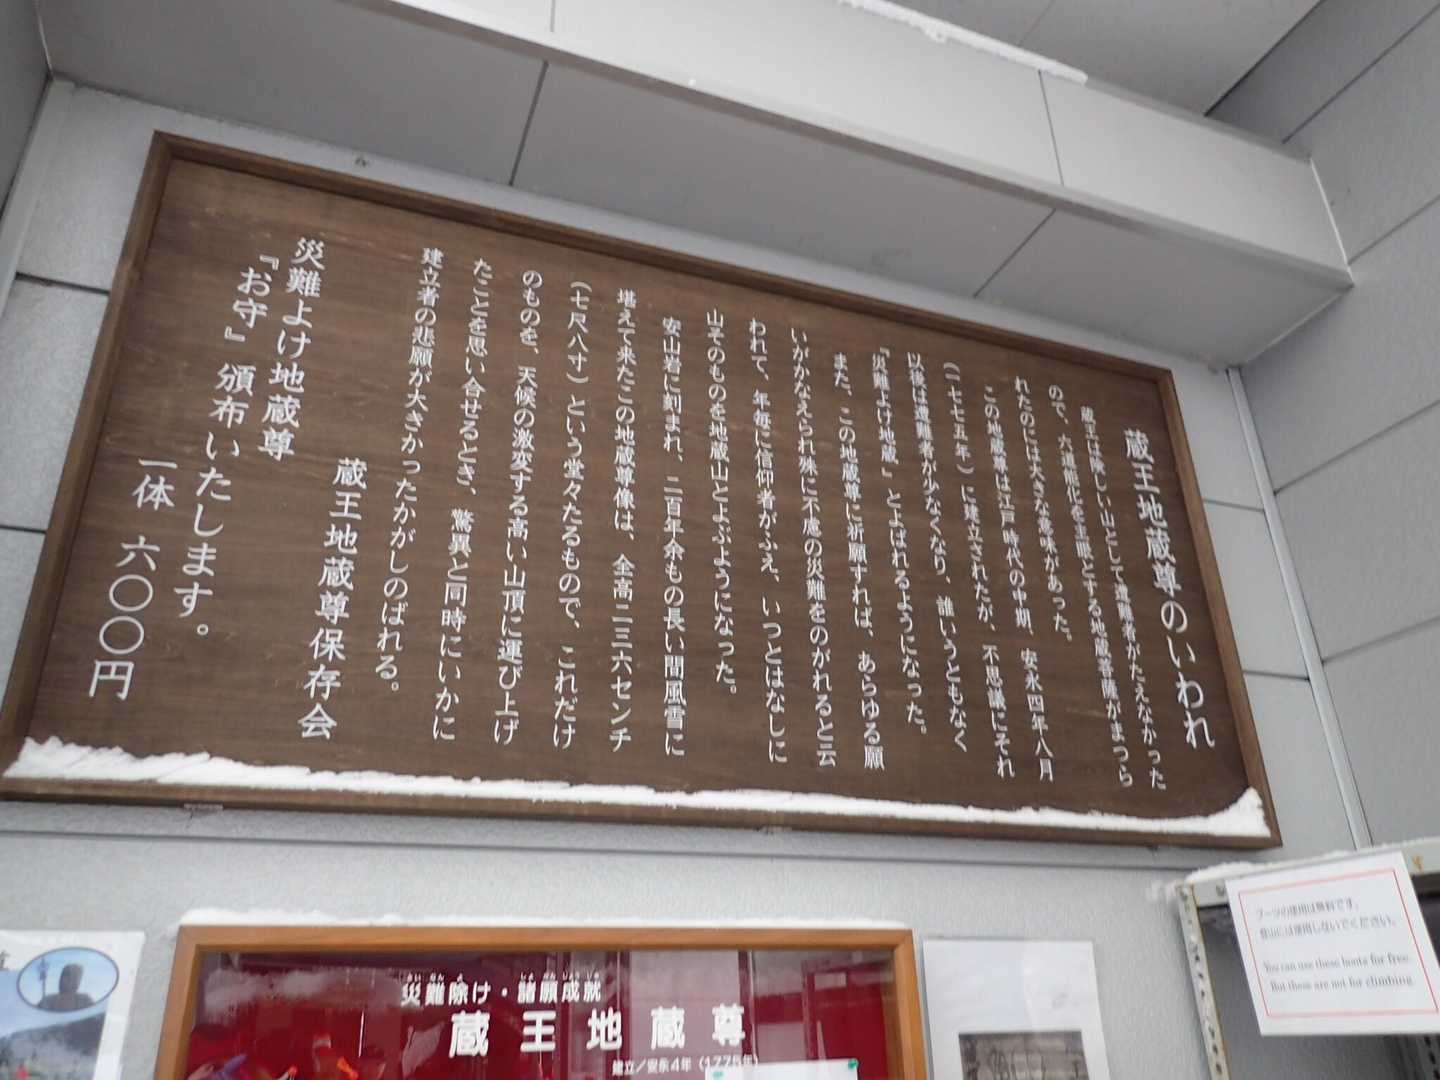 蔵王地蔵尊のいわれ
蔵王は険しい山として遭難者がたえなかった
ので、六道能化を主眼とする地蔵菩薩がまつら
れたのには大きな意味があった。
この地蔵尊は江戸時代の中期、安永四年八月
(一七七五年)に建立されたが、不思議にそれ
以後は遭難者が少なくなり、誰いうともなく
『災難よけ地蔵』とよばれるようになった。
また、この地蔵尊に祈願すれば、あらゆる願
いがかなえられ殊に不慮の災難をのがれると云
われて、年毎に信仰者がふえ、いつとはなしに
山そのものを地蔵山とよぶようになった。
安山岩に刻まれ、二百年余もの長い間風雪に
堪えて来たこの地蔵尊像は、全高二三六センチ
(七尺八寸)という堂々たるもので、これだけ
のものを、天候の激変する高い山頂に運び上げ
たことを思い合せるとき、驚異と同時にいかに
建立者の悲願が大きかったかがしのばれる。
蔵王地蔵尊保存会
災難よけ地蔵尊
『お守』頒布いたします。
一体 六〇〇円
さいなんよ しょがんじょうじゅ
災難除け・諸願成就
蔵王地蔵尊
建立/安永4年(1775年)
ブーツの使用は無料です。
登山には使用しないでください。
You can use these boots for free.
But these are not for climbing.